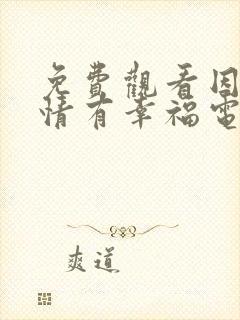 免費觀看因
情有幸福電
爽道